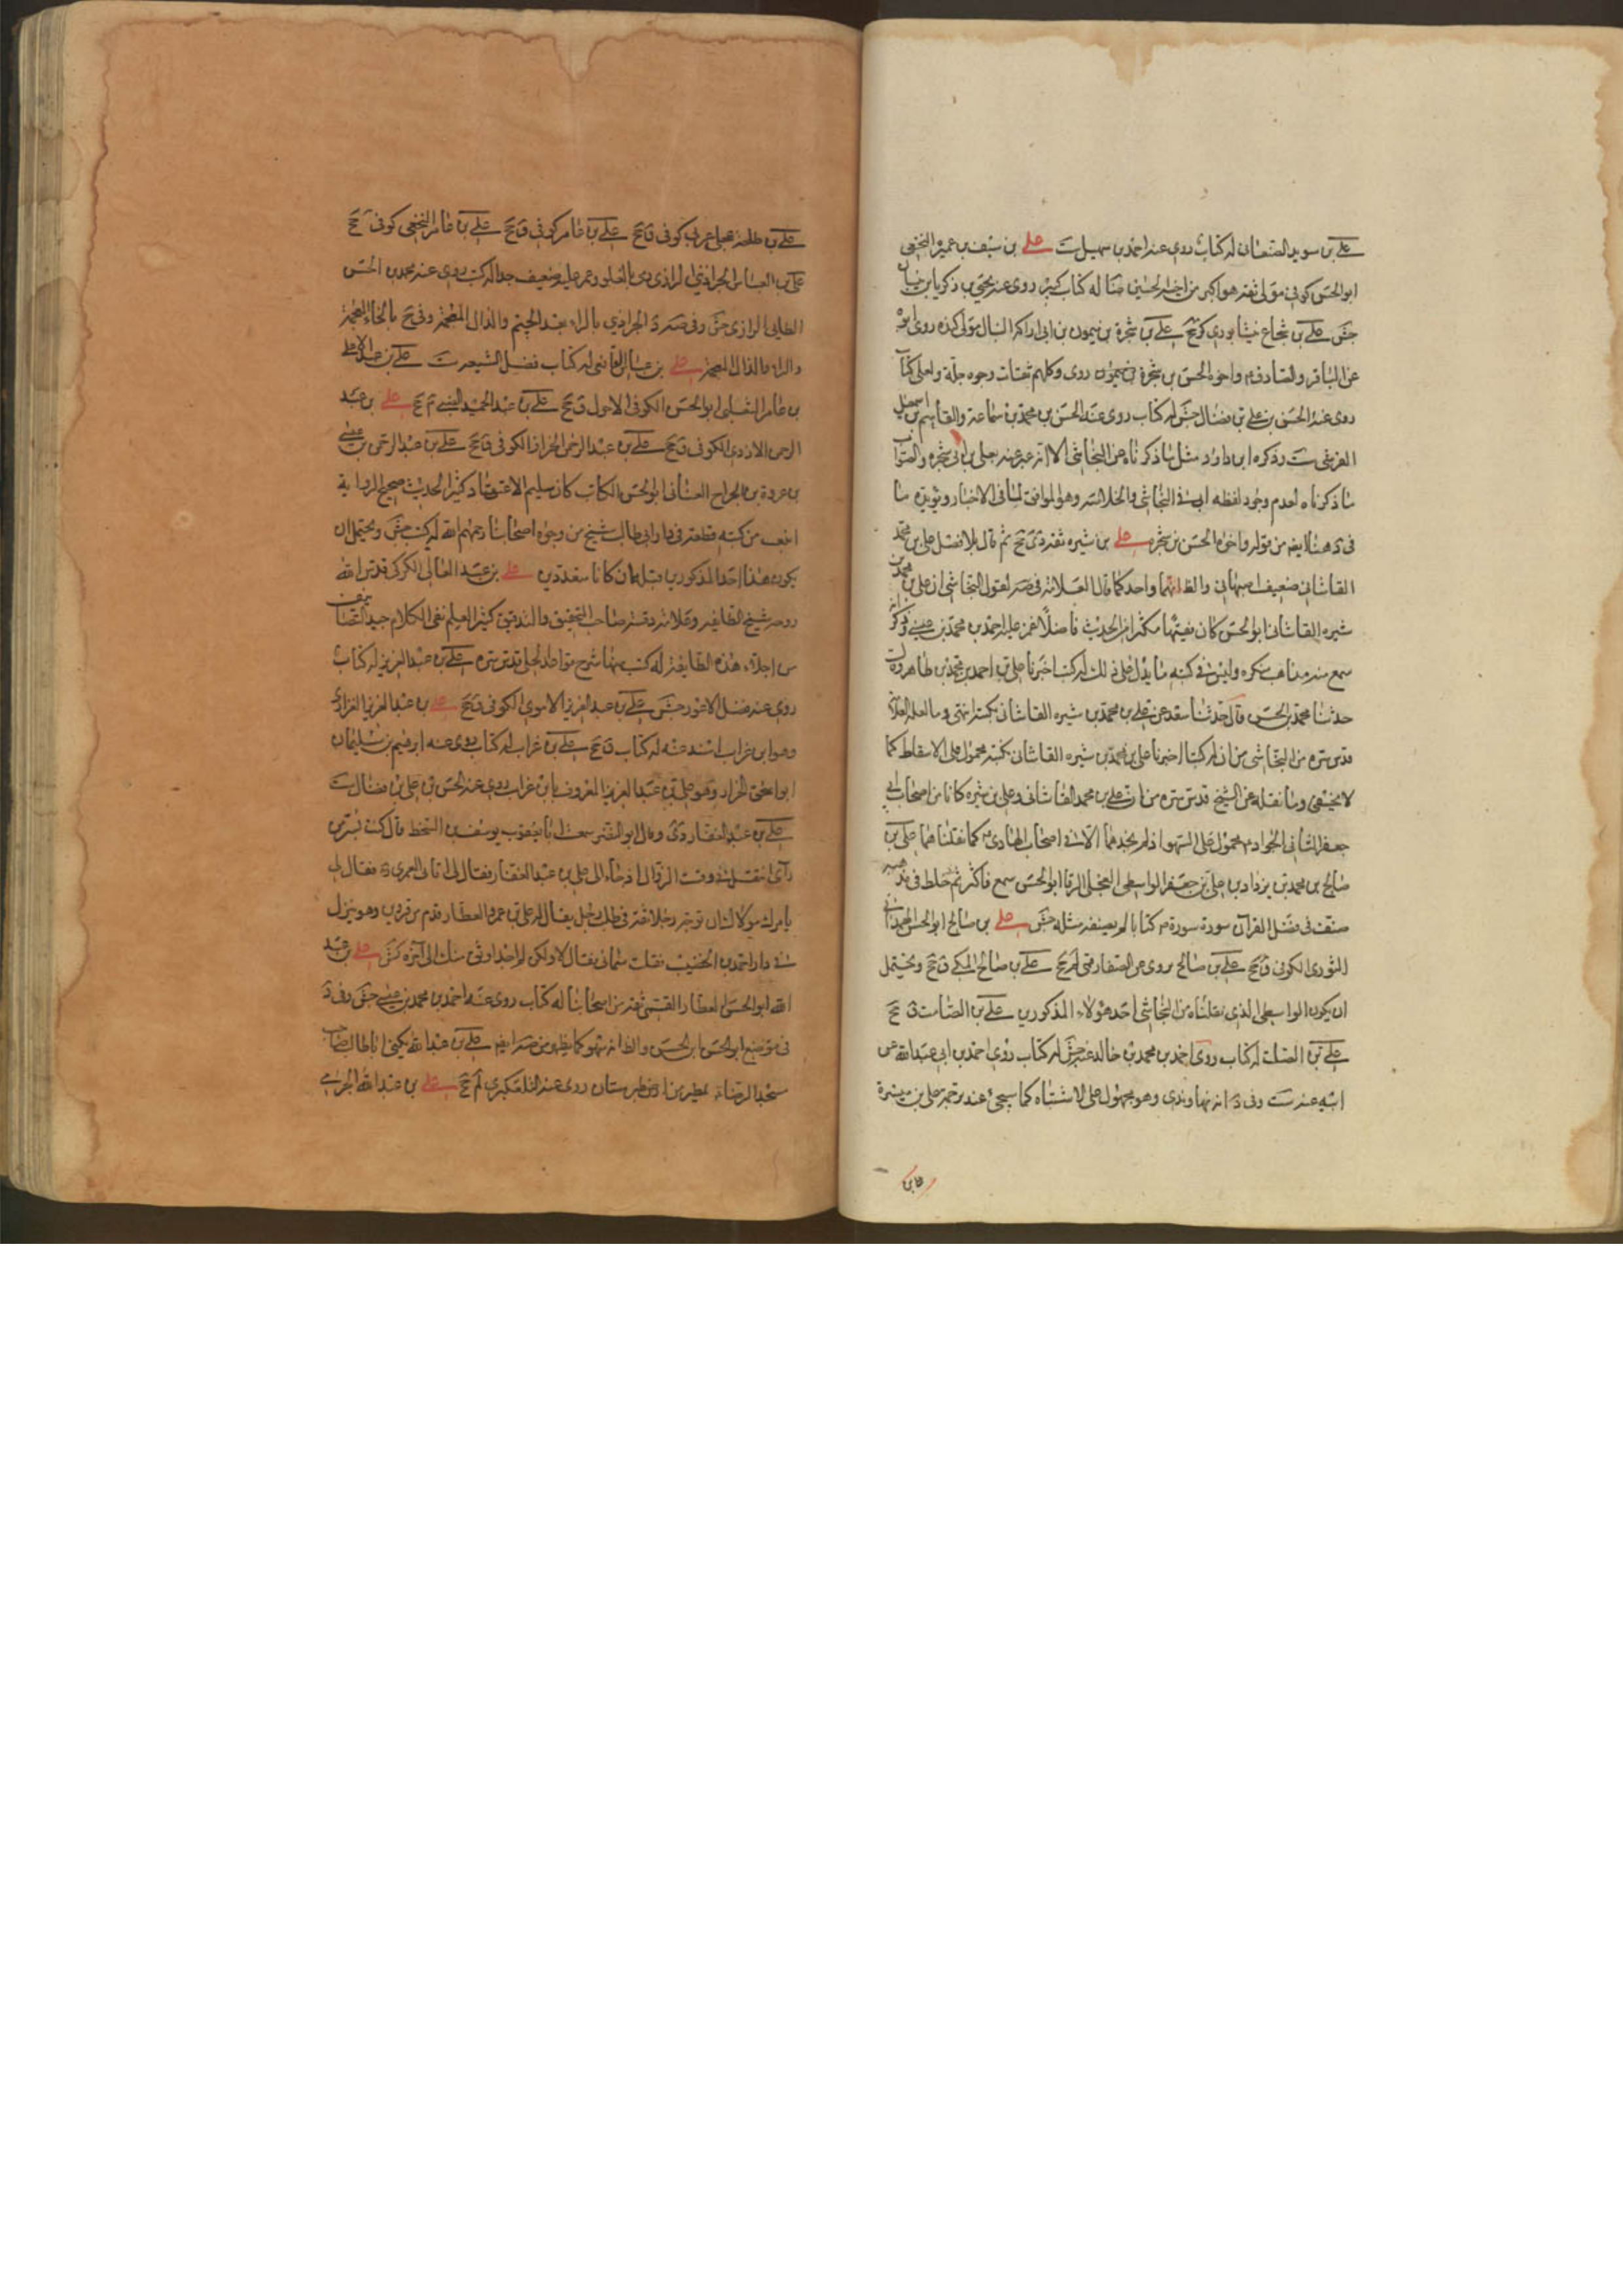 علي بن سويد الصنعاني له كتاب روى عنه احمد بن سهيل ست علي بن سيف بن عميرة النخعي
ابو الحسن كوفي مولى ثقة هو اكبر من اخيه الحسين ضا له كتاب كبير روى عنه يحيى بن زكريا بن شيبان
جش علي بن شجاع نيشابوري كر جخ علي بن شجرة بن ميمون بن ابي اراكة النبال مولى كندة روى ابوه
عن الباقر والصادق واخوه الحسن بن شجرة بن ميمون روى وكلهم ثقات وجوه جلة ولعلي كتاب
روى عنه الحسن بن علي بن فضال جش له كتاب روى عنه الحسن بن محمد بن سماعة والقاسم بن اسمعيل
القرشي ست وذكره ابن داود مثل ما ذكرناه عن النجاشي الا انه عبر عنه بعلي بن ابي شجرة والصواب
ما ذكرناه لعدم وجود لفظة ابي في النجاشي والخلاصة وهو الموافق لما في الاخبار ويؤيده ما
في هذا ايضا من قوله واخوه الحسن بن شجرة علي بن شيره ثقة دي جخ ثم قال بلا فصل علي بن محمد
القاشاني ضعيف اصبهاني والظ انهما واحد كما قال العلامة في صه لقول النجاشي ان علي بن محمد بن
شيره القاشاني ابو الحسن كان فقيها مكثرا من الحديث فاضلا غمز عليه احمد بن محمد بن عيسى وذكر انه
سمع منه مذاهب منكرة وليس في كتبه ما يدل على ذلك له كتب اخبرنا علي بن احمد بن محمد بن طاهر قال
حدثنا محمد بن الحسن قال حدثنا سعد عن علي بن محمد بن شيره القاشاني بكتبه انتهى وما نقله العلامة
قدس سره من النجاشي من ان له كتبا اخبرنا علي بن محمد بن شيره القاشاني بكتبه محمول على الاسقاط كما
لا يخفى وما نقله عن الشيخ قدس سره من ان علي بن محمد القاشاني وعلي بن شيره كانا من اصحاب ابي
جعفر الثاني الجواد محمول على السهو اذ لم يجدهما الا في اصحاب الهادي كما نقلناهما علي بن
صالح بن محمد بن يزداد بن علي بن جعفر الواسطي العجلي الرفا ابو الحسن سمع فاكثر ثم خلط في مذهبه
صنف في فضل القرآن سورة سورة كتابا لم يصنف مثله جش علي بن صالح ابو الحسن الهمداني
الثوري الكوفي ق جخ علي بن صالح روى عن الصفار قمي لم جخ علي بن صالح المكي ق جخ ويحتمل
ان يكون الواسطي الذي نقلناه من النجاشي احد هؤلاء المذكورين علي بن الصامت ق جخ
علي بن الصلت له كتاب روى احمد بن محمد بن خالد عنه جش له كتاب روى احمد بن ابي عبد الله عن
ابيه عنه ست وفي د انه نهاوندي وهو محمول على الاشتباه كما سيجئ عند ترجمة علي بن ميسرة
علي بن
علي بن طلحة عجلي عربي كوفي ق جخ علي بن عامر كوفي ق جخ علي بن عامر النخعي كوفي ق جخ
علي بن العباس الجراذيني الرازي رمي بالغلو وغمز عليه ضعيف جدا له كتب روى عنه محمد بن الحسن
الطائي الرازي جش وفي صه د الجراذيني بالراء بعد الجيم والذال المعجمة وفي جخ بالخاء المعجمة
والراء والذال المعجمة علي بن عباس القاضي له كتاب فضل الشيعة ست علي بن عبد الاعلى
بن عامر الثعلبي ابو الحسن الكوفي الاحول ق جخ علي بن عبد الحميد الضبي م جخ علي بن عبد
الرحمن الازدي الكوفي ق جخ علي بن عبد الرحمن الخزاز الكوفي ق جخ علي بن عبد الرحمن بن عيسى
بن عروة بن الجراح القناني ابو الحسن الكاتب كان سليم الاعتقاد كثير الحديث صحيح الرواية
ابتعت من كتبه قطعة في دار ابي طالب شيخ من وجوه اصحابنا رحمهم الله له كتب جش ويحتمل ان
يكون هذا احد المذكورين قبله ان كانا متعددين علي بن عبد العالي الكركي قدس الله
روحه شيخ الطائفة وعلامة وقته صاحب التحقيق والتدقيق كثير العلم نقي الكلام جيد التصانيف
من اجلاء هذه الطائفة له كتب منها شرح قواعد الحلي قدس سره علي بن عبد العزيز له كتاب
روى عنه فضل الاعور جش علي بن عبد العزيز الاموي الكوفي ق جخ علي بن عبد العزيز الفزاري
وهو ابن غراب اسند عنه له كتاب ق جخ علي بن غراب له كتاب روى عنه ابرهيم بن سليمان
ابو اسحق الخزاز وهو علي بن عبد العزيز المعروف بابن غراب روى عنه الحسن بن علي بن فضال ست
علي بن عبد الغفار روى وقال ابو النضر سمعت ابا يعقوب يوسف بن السخط قال كنت بسر من
رأى اتنقل في وقت الزوال اذ جاء الي علي بن عبد الغفار فقال لي اتاني العمري فقال لي
يأمرك مولاك ان توجه رجلا ثقة في طلب رجل يقال له علي بن عمرو العطار قدم من قزوين وهو ينزل
في دار احمد بن الخضيب فقلت سماني فقال لا ولكن لم اجد اوثق منك الى آخره كش علي بن عبد
الله ابو الحسن العطار القمي ثقة من اصحابنا له كتاب روى عنه احمد بن محمد بن عيسى جش وفي د
في موضع ابو الحسن ابن الحسن والظ انه سهو كما يظهر من صه ايضا علي بن عبد الله يكنى ابا طالب صاحب
مسجد الرضا بمطير من ارض طبرستان روى عنه التلعكبري لم جخ علي بن عبد الله الجرمي